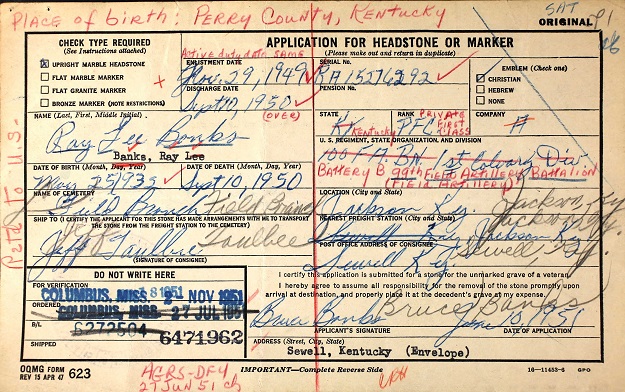 Place of birth: Perry County, Kentucky
SAT
ORIGINAL
CHECK TYPE REQUIRED
(See Instructions attached)
UPRIGHT MARBLE HEADSTONE
FLAT MARBLE MARKER
FLAT GRANITE MARKER
BRONZE MARKER (NOTE RESTRICTIONS)
APPLICATION FOR HEADSTONE OR MARKER
(Please make out and return in duplicate)
Active duty date SAME
ENLISTMENT DATE
Nov. 29, 1949
DISCHARGE DATE
Sept 10, 1950
(OVER)
SERIAL No.
RA 15276292
PENSION No.
EMBLEM (Check one)
CHRISTIAN
HEBREW
NONE
NAME (Last, First, Middle Initial)
Ray Lee Banks
Banks, Ray Lee
STATE
Ky Kentucky
RANK
PFC
PRIVATE FIRST CLASS
COMPANY
A
U.S. REGIMENT, STATE ORGANIZATION, AND DIVISION
1st Calvary Div.
BATTERY B 99th FIELD ARTILLERY BATTALION
(FIELD ARTILLERY)
DATE OF BIRTH (Month, Day, Year)
DATE OF DEATH (Month, Day, Year)
Sept 10, 1950
NAME OF CEMETERY
Field Branch
LOCATION (City and State)
Jackson Ky.
Jackson, Ky
SHIP TO (I CERTIFY THE APPLICANT FOR THIS STONE HAS MADE ARRANGEMENTS WITH ME TO TRANSPORT
THE STONE FROM THE FREIGHT STATION TO THE CEMETERY)
Jeff Taulbee
Taulbee
(SIGNATURE OF CONSIGNEE)
NEAREST FREIGHT STATION (City and State)
Jackson Ky.
POST OFFICE ADDRESS OF CONSIGNEE
Sewell Ky.
Sewell,
DO NOT WRITE HERE
FOR VERIFICATION
COLUMBUS, MISS. 2 NOV 1951
ORDERED
COLUMBUS, MISS. 27 JUL 1951
B/L
6272504
6471962
SHIPPED
I certify this application is submitted for a stone for the unmarked grave of a veteran.
I hereby agree to assume all responsibility for the removal of the stone promptly upon
arrival at destination, and properly place it at the decedent's grave at my expense.
Bruce Banks
Bruce Banks
June 10, 1951
APPLICANT'S SIGNATURE
DATE OF APPLICATION
ADDRESS (Street, City, State)
Sewell, Kentucky (Envelope)
OQMG FORM
REV 15 APR 47
623
AGRS-DFY
27 JUN 51 ch
IMPORTANT—Complete Reverse Side
16—11453-6 GPO